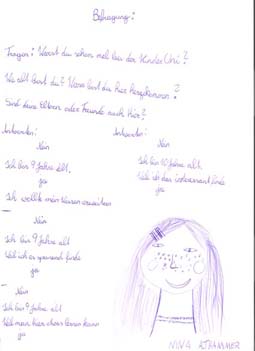 Befragung:
Fragen: Warst du schon mal bei der Kinder Uni?
Wie alt bist du? Wieso bist du hier hergekommen?
Sind deine Eltern oder Freunde auch hier?
Antworten: Antworten:
Nein Nein
Ich bin 9 Jahre alt. Ich bin 10 Jahre alt.
ja Weil ich das interessant finde
Ich wollte mein Wissen erweitern ja
Nein
Ich bin 9 Jahre alt
Weil ich es spannend finde
ja
Nein
Ich bin 9 Jahre alt
Weil man hier etwas lernen kann
ja
NINA